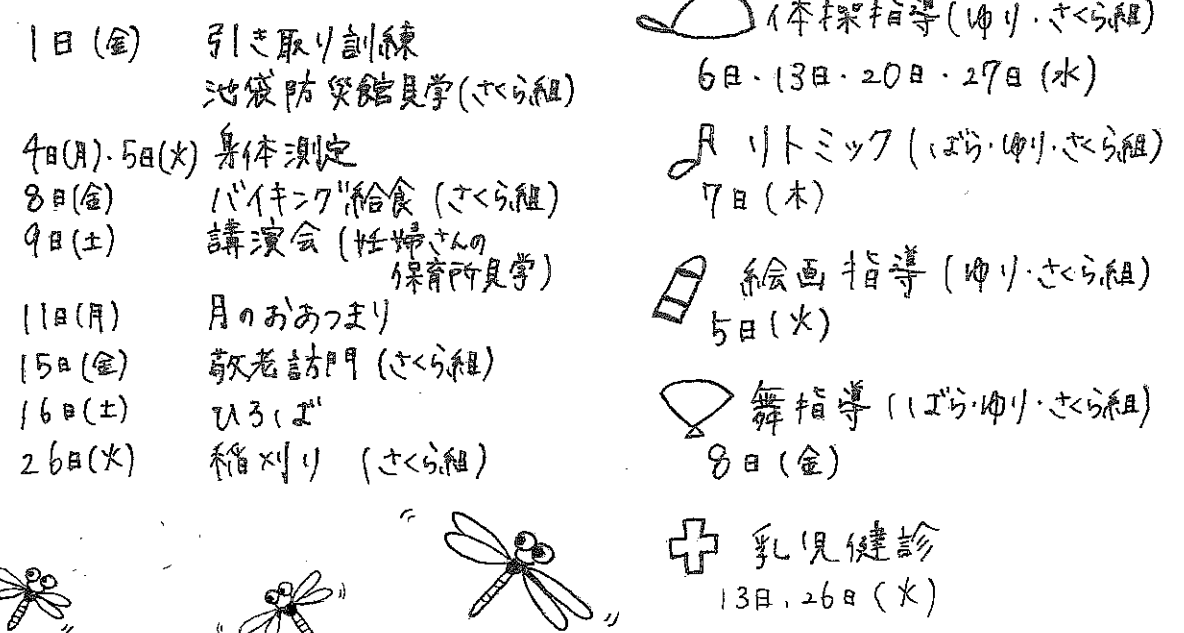 1日(金) 引き取り訓練
池袋防災館見学(さくら組)
4日(月)・5日(火) 身体測定
8日(金) バイキング給食(さくら組)
9日(土) 講演会(妊婦さんの
保育所見学)
11日(月) 月のおあつまり
15日(金) 敬老訪問(さくら組)
16日(土) ひろば
26日(火) 稲刈り (さくら組)
体操指導(ゆり・さくら組)
6日・13日・20日・27日(水)
リトミック(ばら・ゆり・さくら組)
7日(木)
絵画指導(ゆり・さくら組)
5日(火)
舞指導(ばら・ゆり・さくら組)
8日(金)
乳児健診
13日、26日(火)